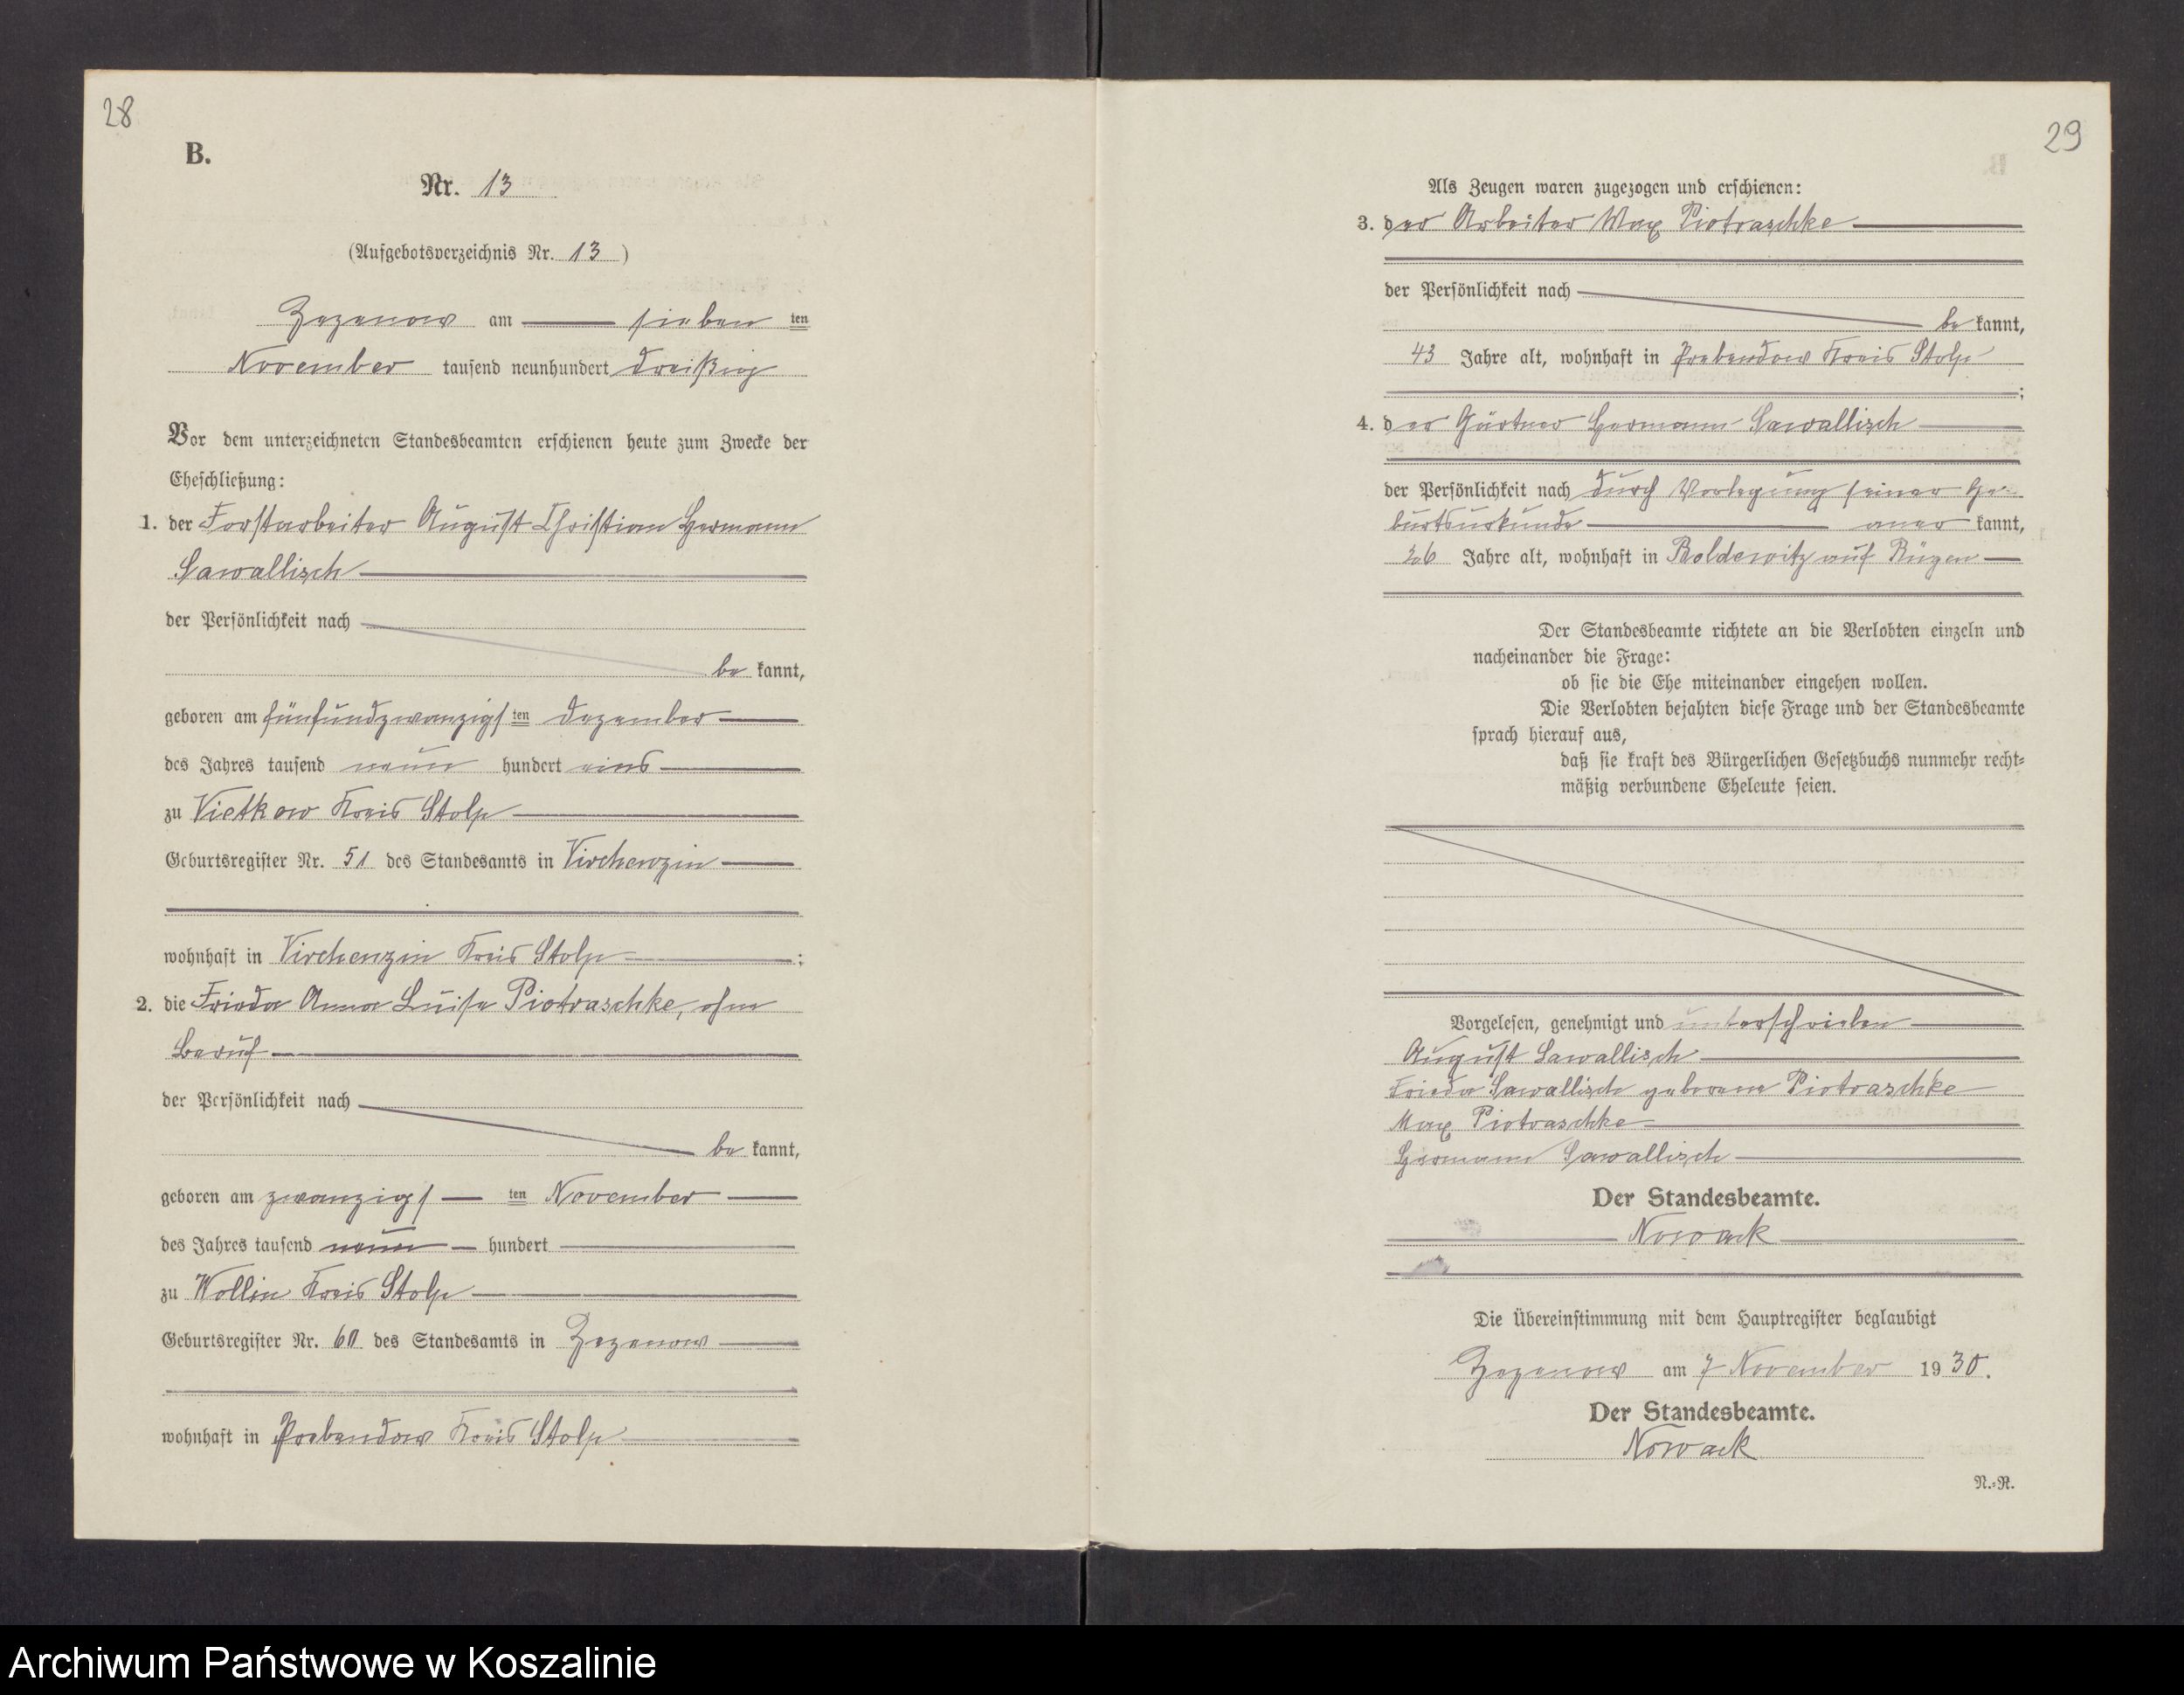 28
B.
Nr. 13
(Aufgebotsverzeichnis Nr. 13)
Zezenow am sieben ten
November tausend neunhundert dreißig
Vor dem unterzeichneten Standesbeamten erschienen heute zum Zwecke der
Eheschließung:
1. der Forstarbeiter August Christian Hermann
Sawallisch
der Persönlichkeit nach
be kannt,
geboren am fünfundzwanzigs ten Dezember
des Jahres tausend neun hundert eins
zu Vietkow Kreis Stolp
Geburtsregister Nr. 51 des Standesamts in Virchenzin
wohnhaft in Virchenzin Kreis Stolp ;
2. die Frieda Anna Luise Piotraschke, ohne
Beruf
der Persönlichkeit nach
be kannt,
geboren am zwanzigs ten November
des Jahres tausend neun hundert
zu Wollin Kreis Stolp
Geburtsregister Nr. 60 des Standesamts in Zezenow
wohnhaft in Prebendow Kreis Stolp
29
Als Zeugen waren zugezogen und erschienen:
3. der Arbeiter Max Piotraschke
der Persönlichkeit nach
be kannt,
43 Jahre alt, wohnhaft in Prebendow Kreis Stolp
;
4. der Gärtner Hermann Sawallisch
der Persönlichkeit nach durch Vorlegung seiner Ge-
burtsurkunde aner kannt,
26 Jahre alt, wohnhaft in Boldewitz auf Rügen
Der Standesbeamte richtete an die Verlobten einzeln und
nacheinander die Frage:
ob sie die Ehe miteinander eingehen wollen.
Die Verlobten bejahten diese Frage und der Standesbeamte
sprach hierauf aus,
daß sie kraft des Bürgerlichen Gesetzbuchs nunmehr recht-
mäßig verbundene Eheleute seien.
Vorgelesen, genehmigt und unterschrieben
August Sawallisch
Frieda Sawallisch geborene Piotraschke
Max Piotraschke
Hermann Sawallisch
Der Standesbeamte.
Nowack
Die Übereinstimmung mit dem Hauptregister beglaubigt
Zezenow am 7 November 1930.
Der Standesbeamte.
Nowack
N.-R.
Archiwum Państwowe w Koszalinie